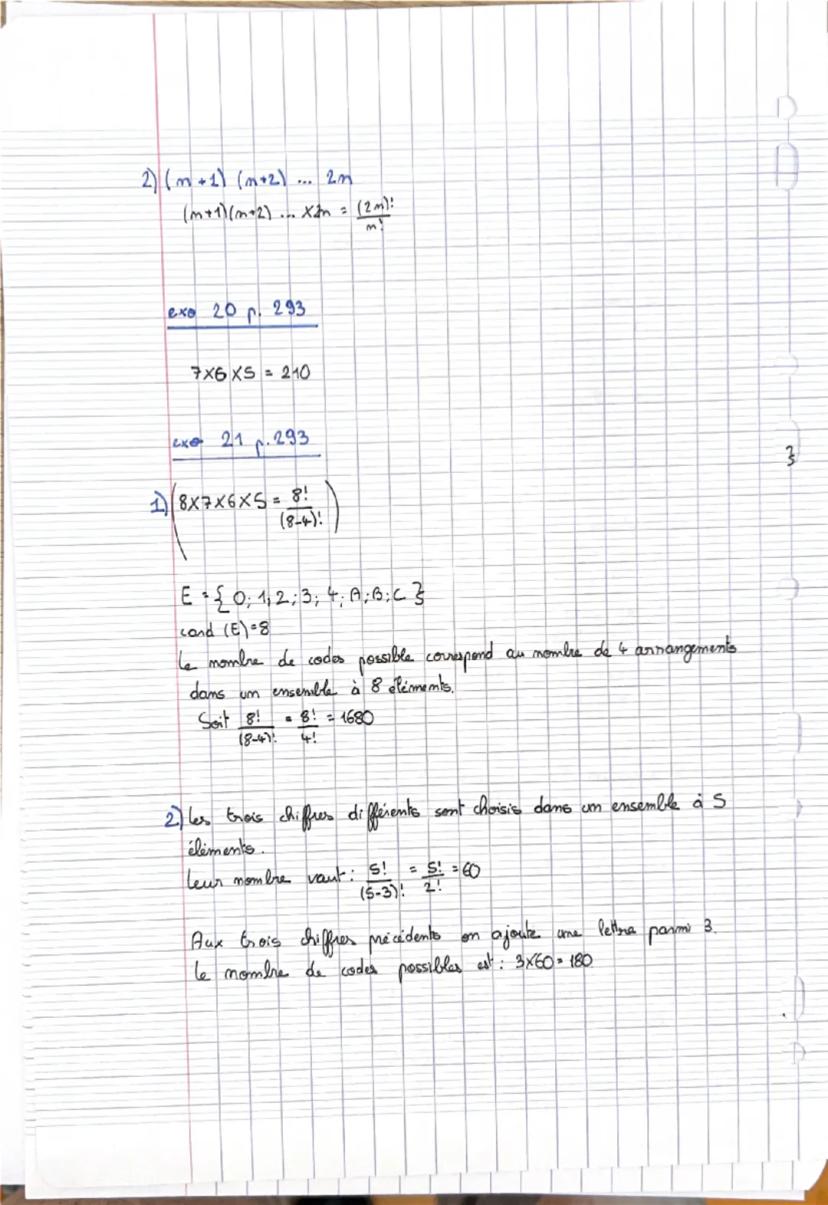 2) (n+1) (n+2) ... 2n
(n+1)(n+2) ... x2n = (2n)!/n!
exo 20 p. 293
7x6x5 = 210
exo 21 p.293
}
1) (8x7x6x5 = 8!/(8-4)!)
E = { 0; 1; 2; 3; 4; A; B; C }
card (E) = 8
Le nombre de codes possible correspond au nombre de 4 arrangements
dans un ensemble à 8 éléments.
Soit 8!/(8-4)! = 8!/4! = 1680
2) Les trois chiffres différents sont choisis dans un ensemble à 5
éléments.
Leur nombre vaut : 5!/(5-3)! = 5!/2! = 60
Aux trois chiffres précédents on ajoute une lettre parmi 3.
Le nombre de codes possibles est : 3x60 = 180